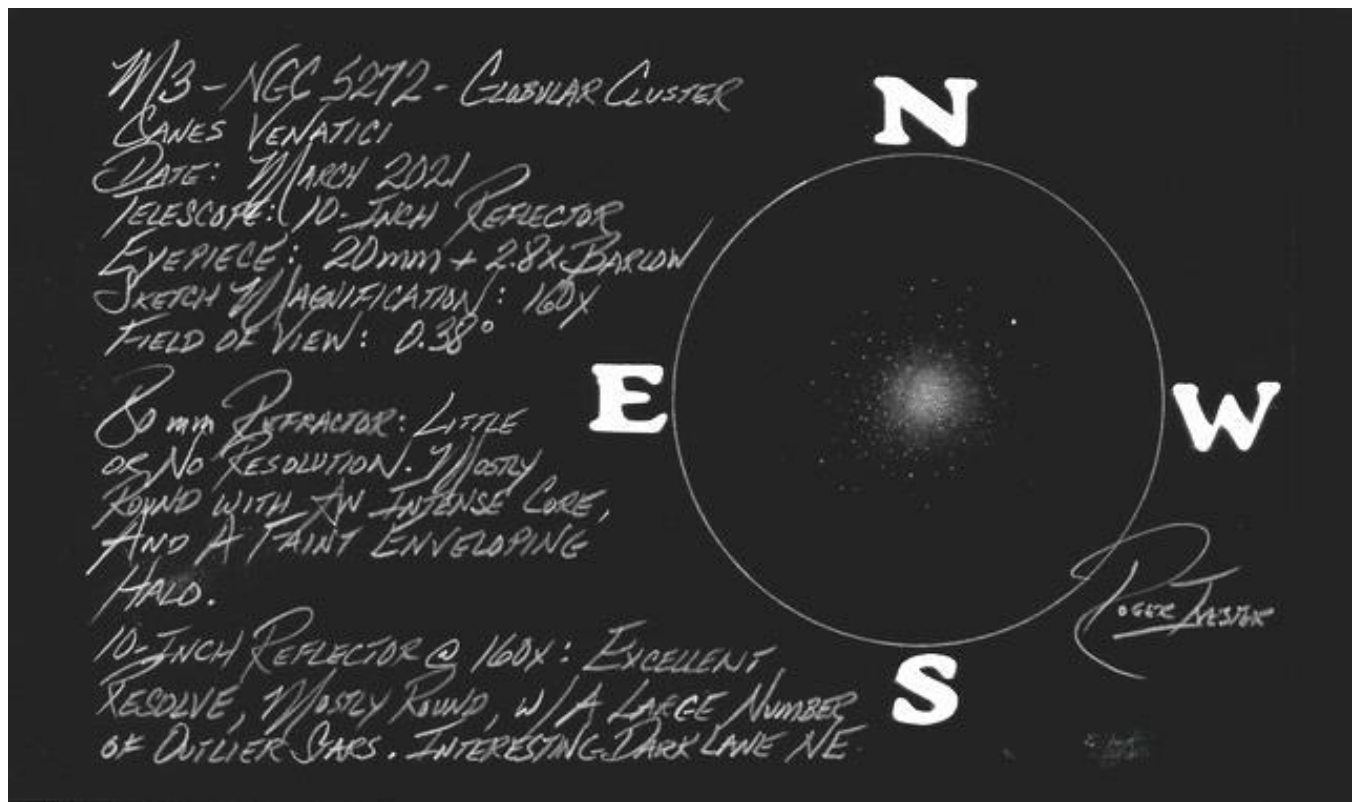 M3 - NGC 5272 - GLOBULAR CLUSTER
CANES VENATICI
DATE: MARCH 2021
TELESCOPE: 10-INCH REFLECTOR
EYEPIECE: 20mm + 2.8X BARLOW
SKETCH MAGNIFICATION: 160X
FIELD OF VIEW: 0.38°
80mm REFRACTOR: LITTLE
OR NO RESOLUTION. MOSTLY
ROUND WITH AN INTENSE CORE,
AND A FAINT ENVELOPING
HALO.
10-INCH REFLECTOR @ 160X: EXCELLENT
RESOLVE, MOSTLY ROUND, W/A LARGE NUMBER
OF OUTLIER STARS. INTERESTING DARK LANE NE
N
E
W
S
ROGER